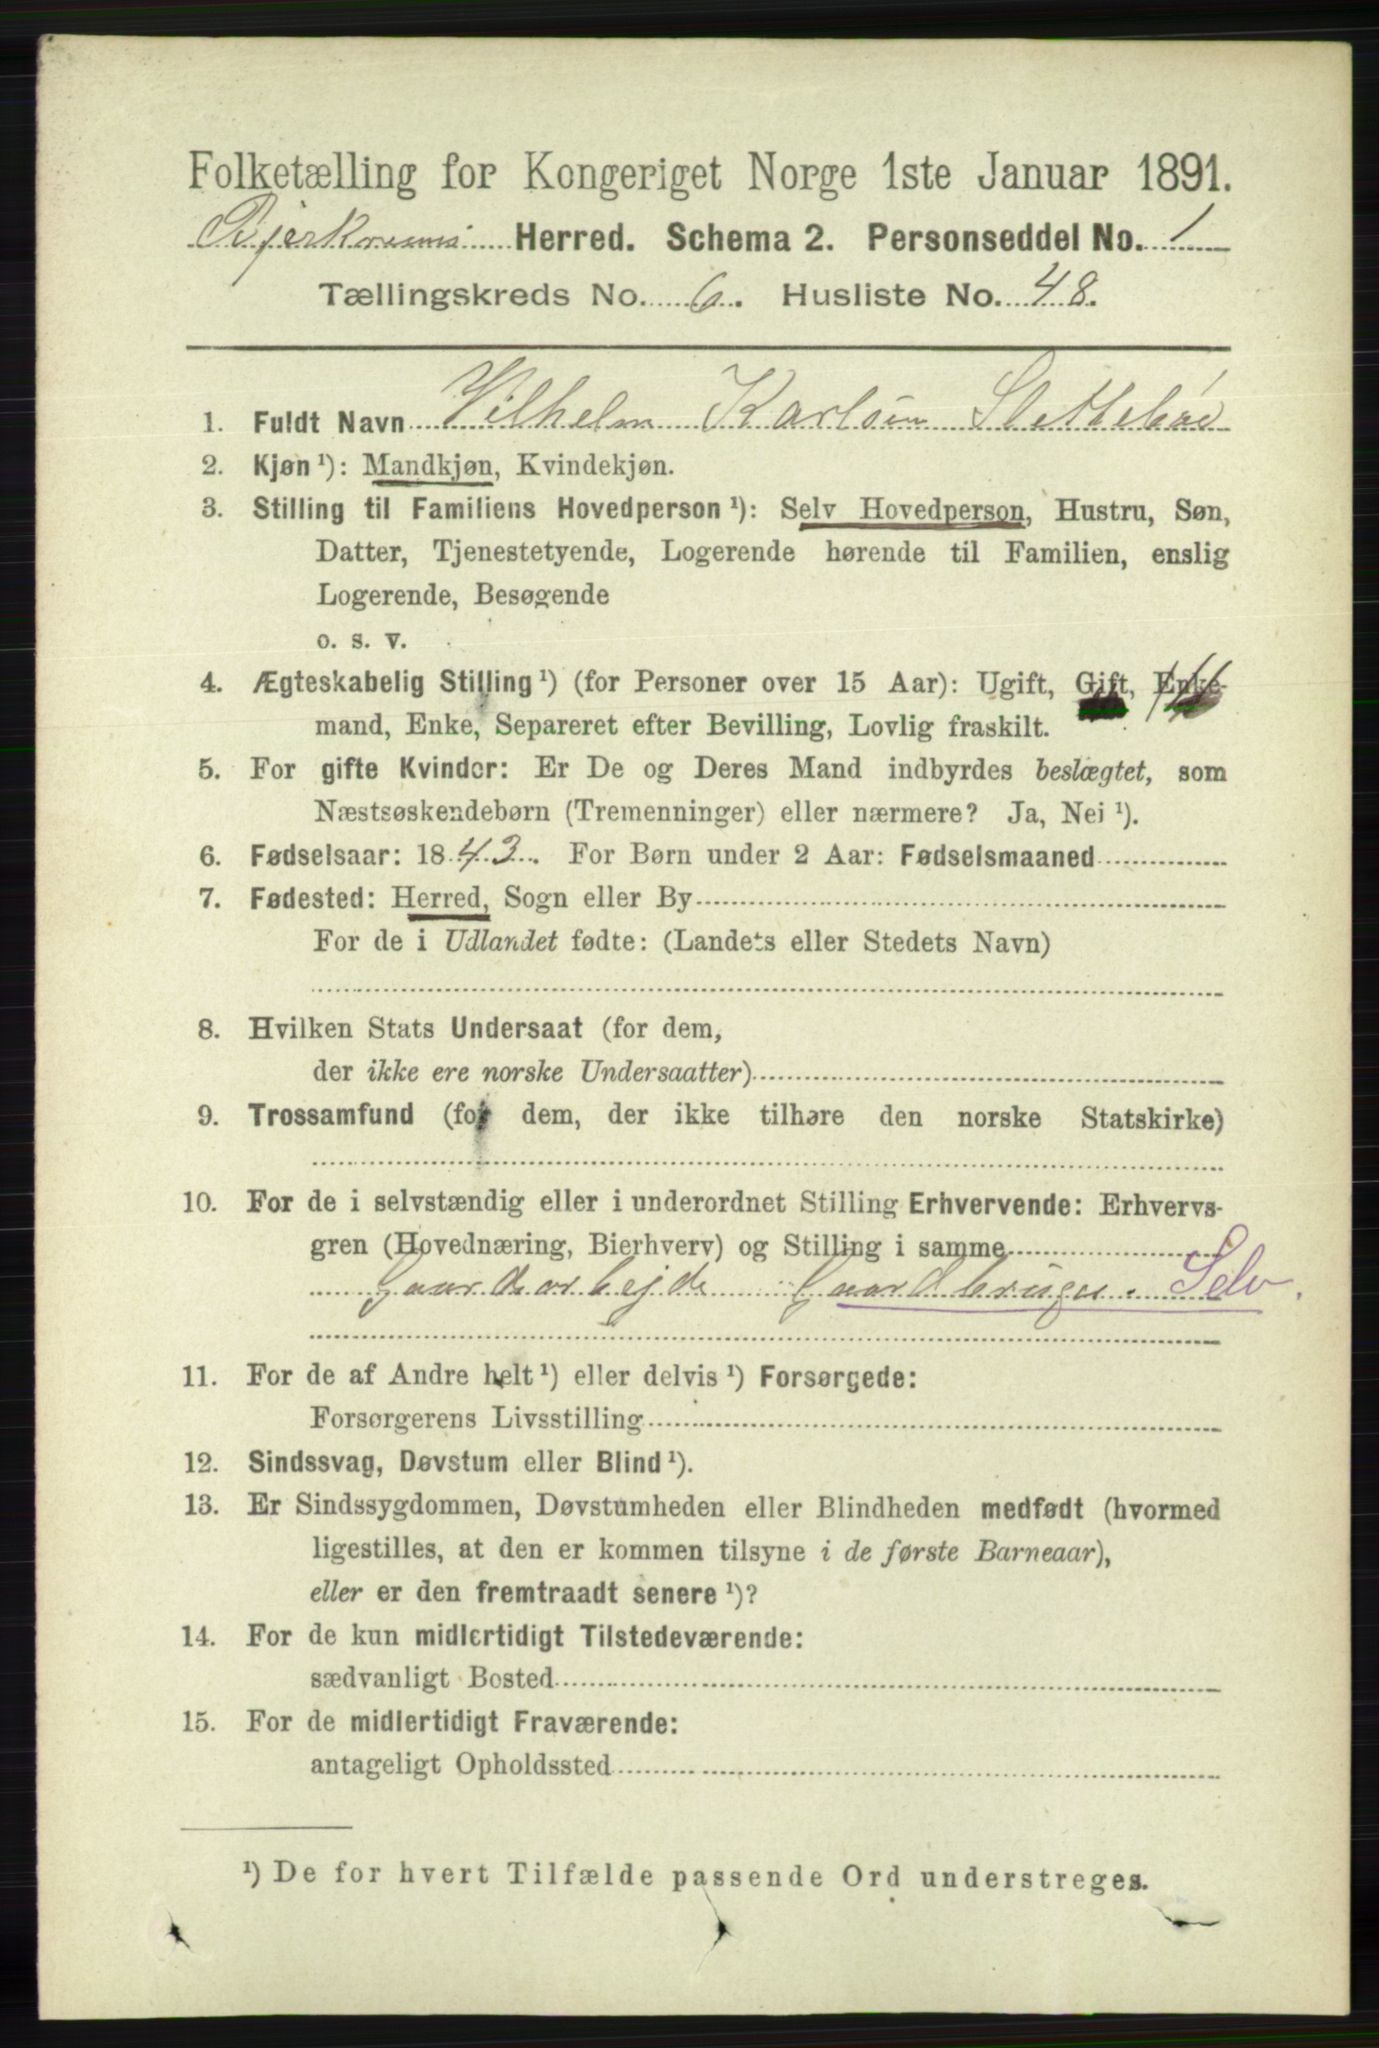 Folketælling for Kongeriget Norge 1ste Januar 1891.
Bjerkreims Herred. Schema 2. Personseddel No. 1
Tællingskreds No. 6. Husliste No. 48.
1. Fuldt Navn Vilhelm Karlsen Slettebøe
2. Kjøn ¹): Mandkjøn, Kvindekjøn.
3. Stilling til Familiens Hovedperson ¹): Selv Hovedperson, Hustru, Søn,
Datter, Tjenestetyende, Logerende hørende til Familien, enslig
Logerende, Besøgende
o. s. v.
4. Ægteskabelig Stilling ¹) (for Personer over 15 Aar): Ugift, Gift, Enke-
mand, Enke, Separeret efter Bevilling, Lovlig fraskilt.
5. For gifte Kvinder: Er De og Deres Mand indbyrdes beslægtet, som
Næstsøskendebørn (Tremenninger) eller nærmere? Ja, Nei ¹).
6. Fødselsaar: 1843. For Børn under 2 Aar: Fødselsmaaned
7. Fødested: Herred, Sogn eller By
For de i Udlandet fødte: (Landets eller Stedets Navn)
8. Hvilken Stats Undersaat (for dem,
der ikke ere norske Undersaatter)
9. Trossamfund (for dem, der ikke tilhøre den norske Statskirke)
10. For de i selvstændig eller i underordnet Stilling Erhvervende: Erhvervs-
gren (Hovednæring, Bierhverv) og Stilling i samme
Gaardsarbejde Gaardbruger. Selv.
11. For de af Andre helt ¹) eller delvis ¹) Forsørgede:
Forsørgerens Livsstilling
12. Sindssvag, Døvstum eller Blind ¹).
13. Er Sindssygdommen, Døvstumheden eller Blindheden medfødt (hvormed
ligestilles, at den er kommen tilsyne i de første Barneaar),
eller er den fremtraadt senere ¹)?
14. For de kun midlertidigt Tilstedeværende:
sædvanligt Bosted
15. For de midlertidigt Fraværende:
antageligt Opholdssted
¹) De for hvert Tilfælde passende Ord understreges.